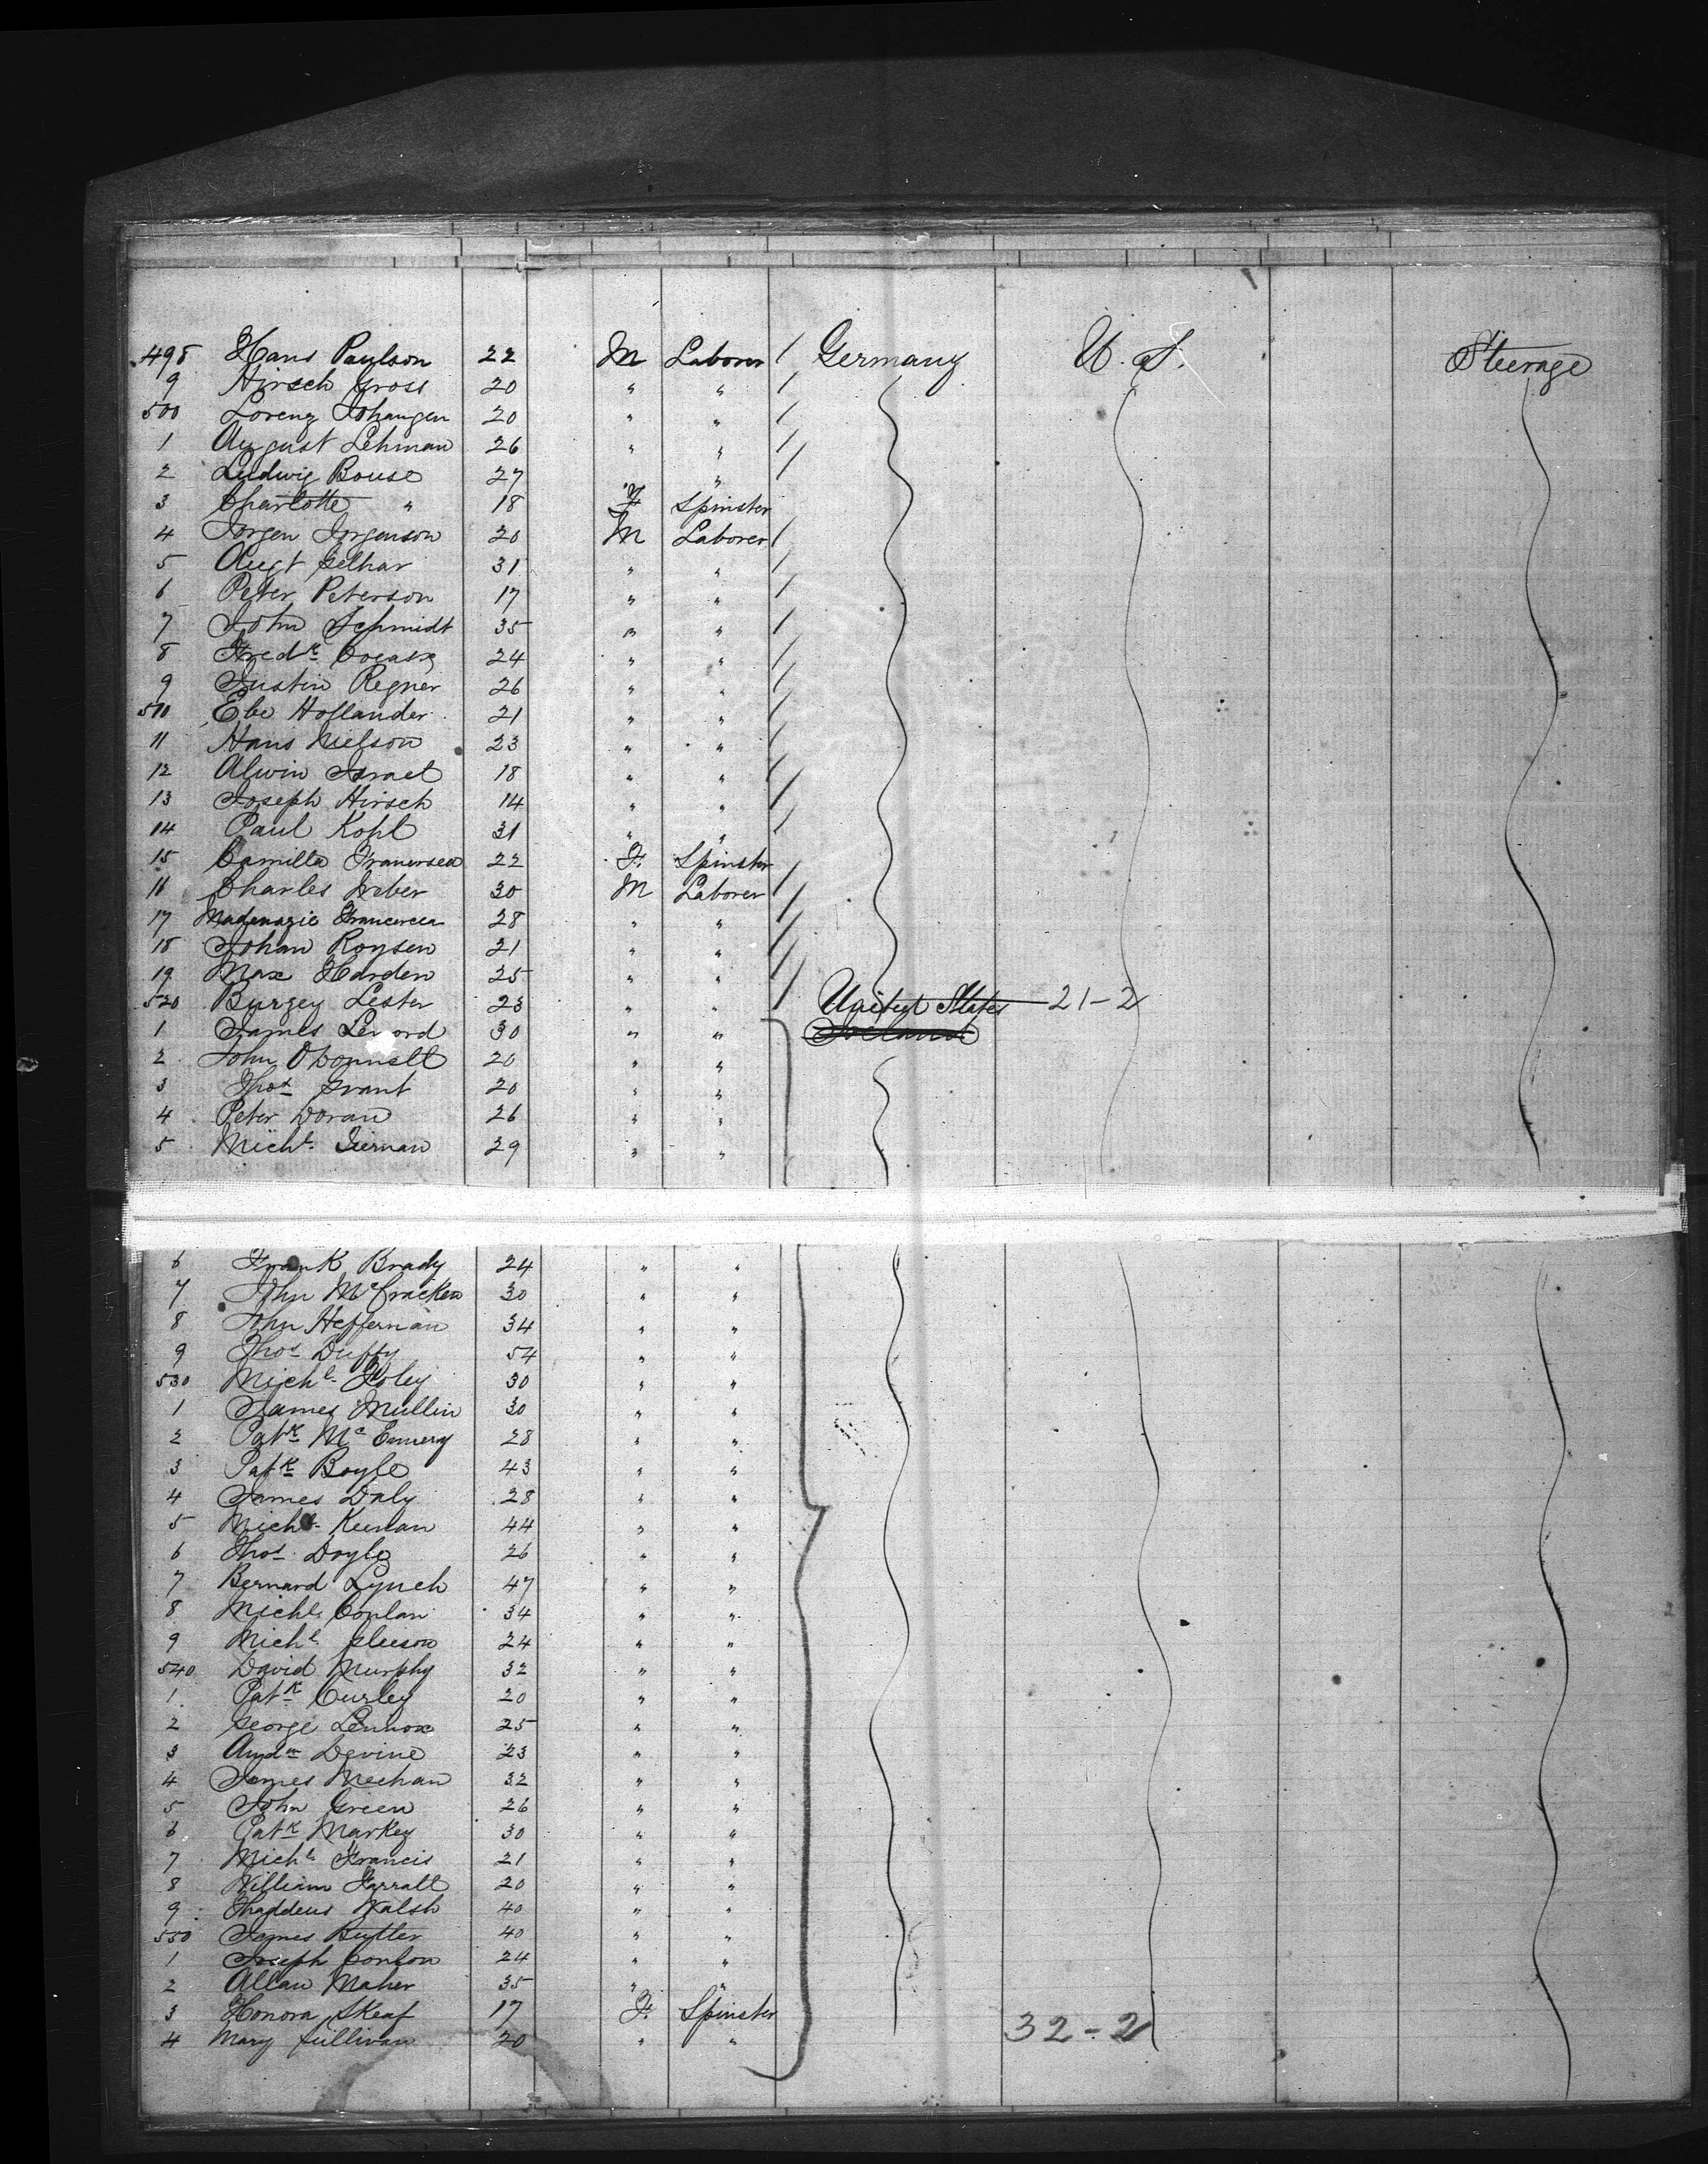 498 Hans Paulson 22 M Laborer / Germany U.S. Steerage
9 Hirsch Gross 20 " " /
500 Lorenz Johangen 20 " " /
1 August Lehman 26 " " /
2 Ludwig Bouse 27 " " /
3 Charlotte " 18 F Spinster
4 Jorgen Jorgenson 20 M Laborer /
5 Augt Gelhar 31 " " /
6 Peter Peterson 17 " " /
7 John Schmidt 35 " " /
8 Fredk 24 " " /
9 Justin Regner 26 " " /
510 Ebe Hollander 21 " " /
11 Hans Nielson 23 " " /
12 Alwin Israel 18 " " /
13 Joseph Hirsch 14 " " /
14 Paul Kohl 31 " " /
15 Camilla 22 F. Spinster
16 Charles Weber 30 M Laborer /
17 28 " " /
18 Johan Roysen 21 " " /
19 Max Harden 25 " " /
520 Burgey Lester 23 " " / United States 21-2
1 James 30 " " Ireland
2 John O'Donnell 20 " "
3 Thos Grant 20 " "
4 Peter Doran 26 " "
5 Michl Tiernan 29 " "
6 Frank Brady 24 " "
7 John McCracken 30 " "
8 John Heffernan 34 " "
9 Thos Duffy 54 " "
530 Michl Foley 30 " "
1 James Mullin 30 " "
2 Patk McEnnery 28 " "
3 Patk Boyle 43 " "
4 James Daly 28 " "
5 Michl Keenan 44 " "
6 Thos Doyle 26 " "
7 Bernard Lynch 47 " "
8 Michl Conlan 34 " "
9 Michl Gleeson 24 " "
540 David Murphy 32 " "
1 Patk Curley 20 " "
2 George Lennox 25 " "
3 Andw Devine 23 " "
4 James Meehan 32 " "
5 John Green 26 " "
6 Patk Markey 30 " "
7 Michl Francis 21 " "
8 William Farrall 20 " "
9 Thaddeus Walsh 40 " "
550 James Butler 40 " "
1 Joseph Conlon 24 " "
2 Allan Maher 35 " "
3 Honora Skeaf 17 F. Spinster
4 Mary Sullivan 20 " " 32-2